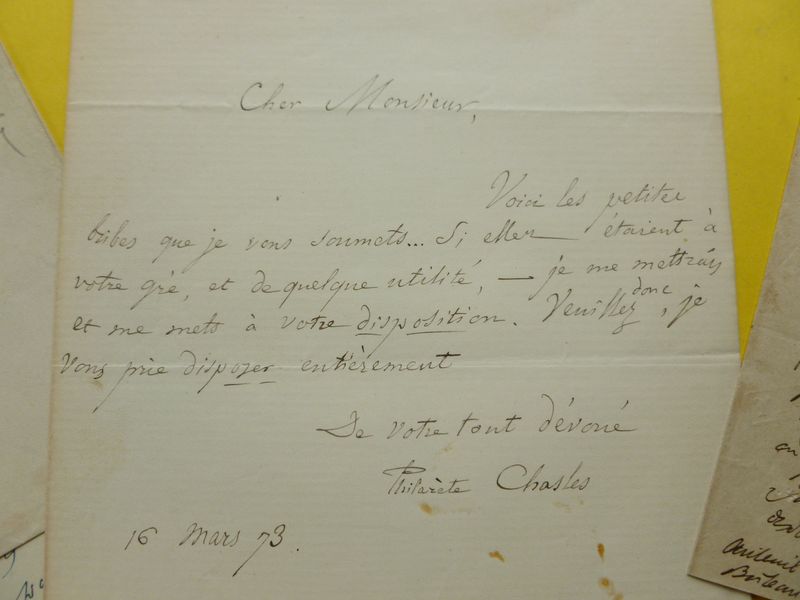 Cher Monsieur,
Voici les petites
bribes que je vous soumets... Si elles étaient à
votre gré, et de quelque utilité, — je me mettrais
et me mets à votre disposition. Veuillez donc, je
vous prie disposer entièrement
De votre tout dévoué
Philarète Chasles
16 Mars 73.
auteuil